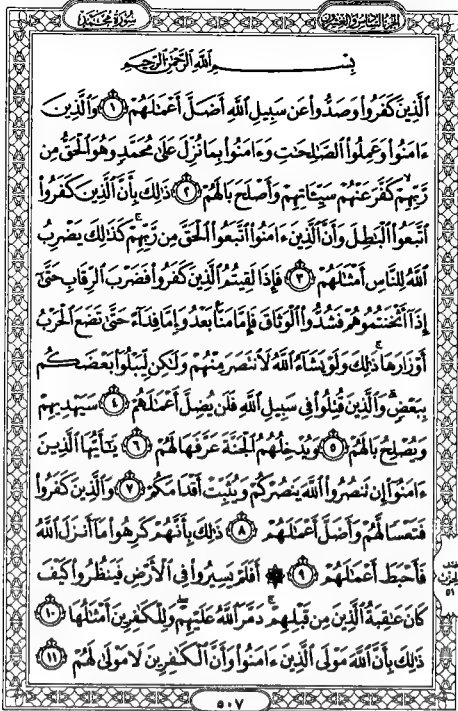 الجزء السادس والعشرون
سورة محمد
بِسْمِ اللَّهِ الرَّحْمَٰنِ الرَّحِيمِ
الَّذِينَ كَفَرُوا وَصَدُّوا عَن سَبِيلِ اللَّهِ أَضَلَّ أَعْمَٰلَهُمْ ١ وَالَّذِينَ
ءَامَنُوا وَعَمِلُوا الصَّٰلِحَٰتِ وَءَامَنُوا بِمَا نُزِّلَ عَلَىٰ مُحَمَّدٍ وَهُوَ الْحَقُّ مِن
رَّبِّهِمْ كَفَّرَ عَنْهُمْ سَيِّـَٔاتِهِمْ وَأَصْلَحَ بَالَهُمْ ٢ ذَٰلِكَ بِأَنَّ الَّذِينَ كَفَرُوا
اتَّبَعُوا الْبَٰطِلَ وَأَنَّ الَّذِينَ ءَامَنُوا اتَّبَعُوا الْحَقَّ مِن رَّبِّهِمْ ۚ كَذَٰلِكَ يَضْرِبُ
اللَّهُ لِلنَّاسِ أَمْثَٰلَهُمْ ٣ فَإِذَا لَقِيتُمُ الَّذِينَ كَفَرُوا فَضَرْبَ الرِّقَابِ حَتَّىٰٓ
إِذَآ أَثْخَنتُمُوهُمْ فَشُدُّوا الْوَثَاقَ فَإِمَّا مَنًّۢا بَعْدُ وَإِمَّا فِدَآءً حَتَّىٰ تَضَعَ الْحَرْبُ
أَوْزَارَهَا ۚ ذَٰلِكَ وَلَوْ يَشَآءُ اللَّهُ لَانتَصَرَ مِنْهُمْ وَلَٰكِن لِّيَبْلُوَا بَعْضَكُم
بِبَعْضٍ ۗ وَالَّذِينَ قُتِلُوا فِي سَبِيلِ اللَّهِ فَلَن يُضِلَّ أَعْمَٰلَهُمْ ٤ سَيَهْدِيهِمْ
وَيُصْلِحُ بَالَهُمْ ٥ وَيُدْخِلُهُمُ الْجَنَّةَ عَرَّفَهَا لَهُمْ ٦ يَٰٓأَيُّهَا الَّذِينَ
ءَامَنُوٓا إِن تَنصُرُوا اللَّهَ يَنصُرْكُمْ وَيُثَبِّتْ أَقْدَامَكُمْ ٧ وَالَّذِينَ كَفَرُوا
فَتَعْسًا لَّهُمْ وَأَضَلَّ أَعْمَٰلَهُمْ ٨ ذَٰلِكَ بِأَنَّهُمْ كَرِهُوا مَآ أَنزَلَ اللَّهُ
فَأَحْبَطَ أَعْمَٰلَهُمْ ٩ ۞ أَفَلَمْ يَسِيرُوا فِي الْأَرْضِ فَيَنظُرُوا كَيْفَ
كَانَ عَٰقِبَةُ الَّذِينَ مِن قَبْلِهِمْ ۚ دَمَّرَ اللَّهُ عَلَيْهِمْ ۖ وَلِلْكَٰفِرِينَ أَمْثَٰلُهَا ١٠
ذَٰلِكَ بِأَنَّ اللَّهَ مَوْلَى الَّذِينَ ءَامَنُوا وَأَنَّ الْكَٰفِرِينَ لَا مَوْلَىٰ لَهُمْ ١١
٥٠٧